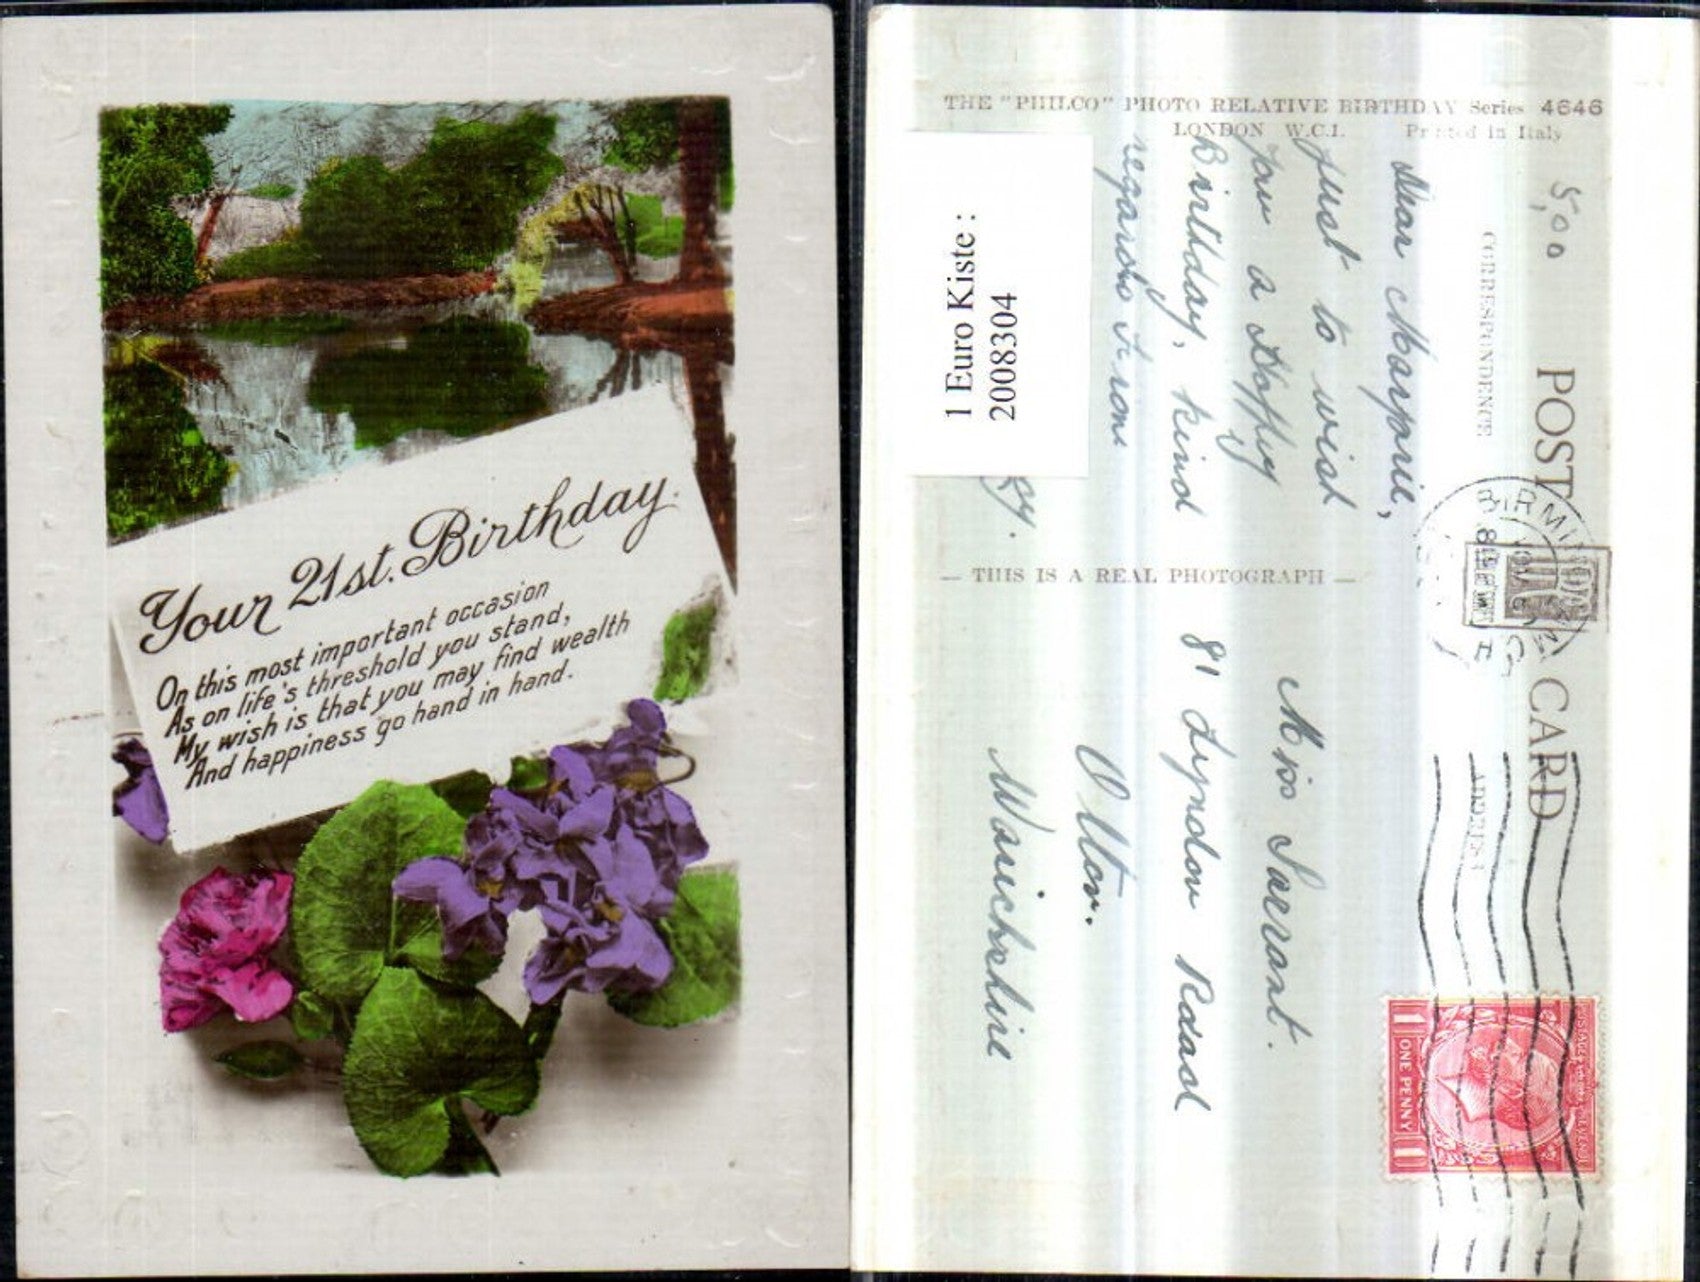 Your 21st. Birthday.
On this most important occasion
As on life's threshold you stand,
My wish is that you may find wealth
And happiness go hand in hand.
THE "PHILCO" PHOTO RELATIVE BIRTHDAY Series 4646
LONDON W.C.1. Printed in Italy
1 Euro Kiste :
2008304
5,00
POST CARD
CORRESPONDENCE
ADDRESS
Dear Marjorie,
Just to wish
you a Happy
Birthday, kind
regards from
— THIS IS A REAL PHOTOGRAPH —
Miss
81 Lyndon Road
Olton.
Warickshire
BIRMING
POSTAGE REVENUE
1 ONE PENNY 1